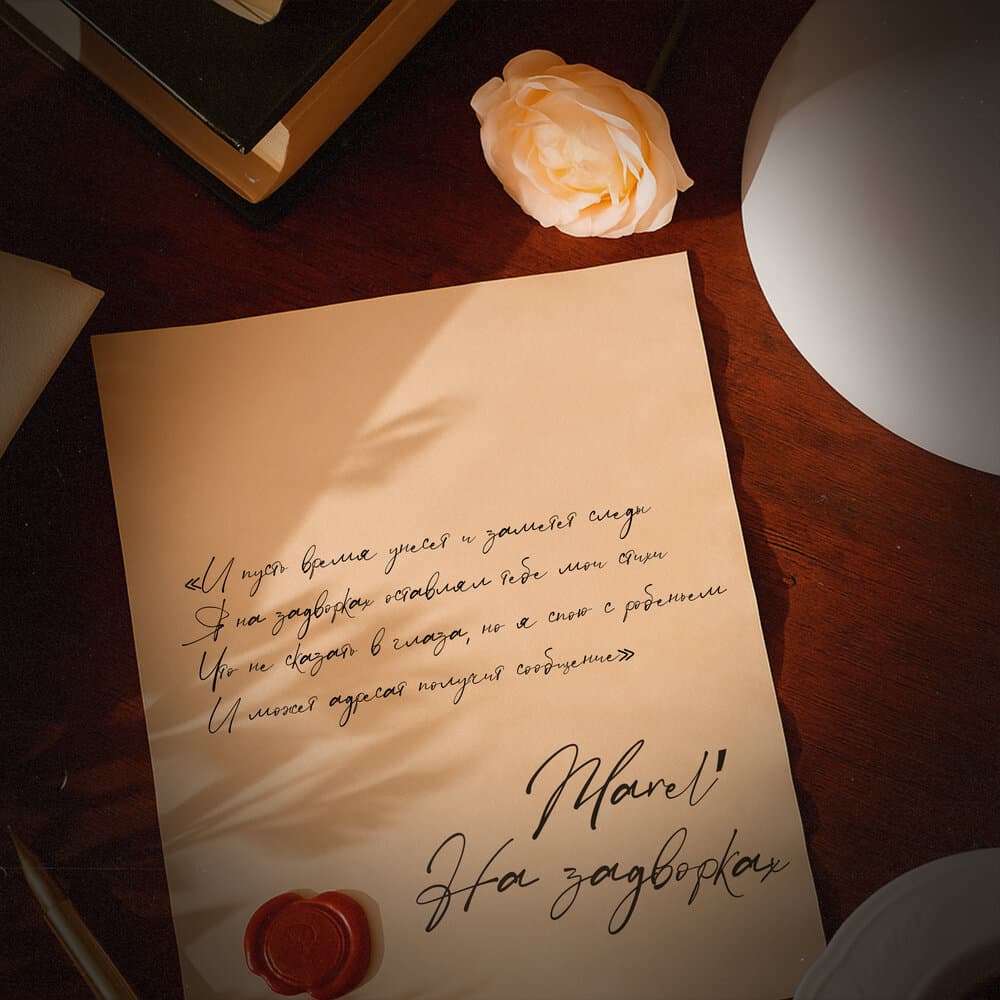 «И пусть время унесет и заметет следы
Я на задворках оставлял тебе мои стихи
Что не сказать в глаза, но я спою с робеньем
И может адресат получит сообщение»
Marel'
На задворках